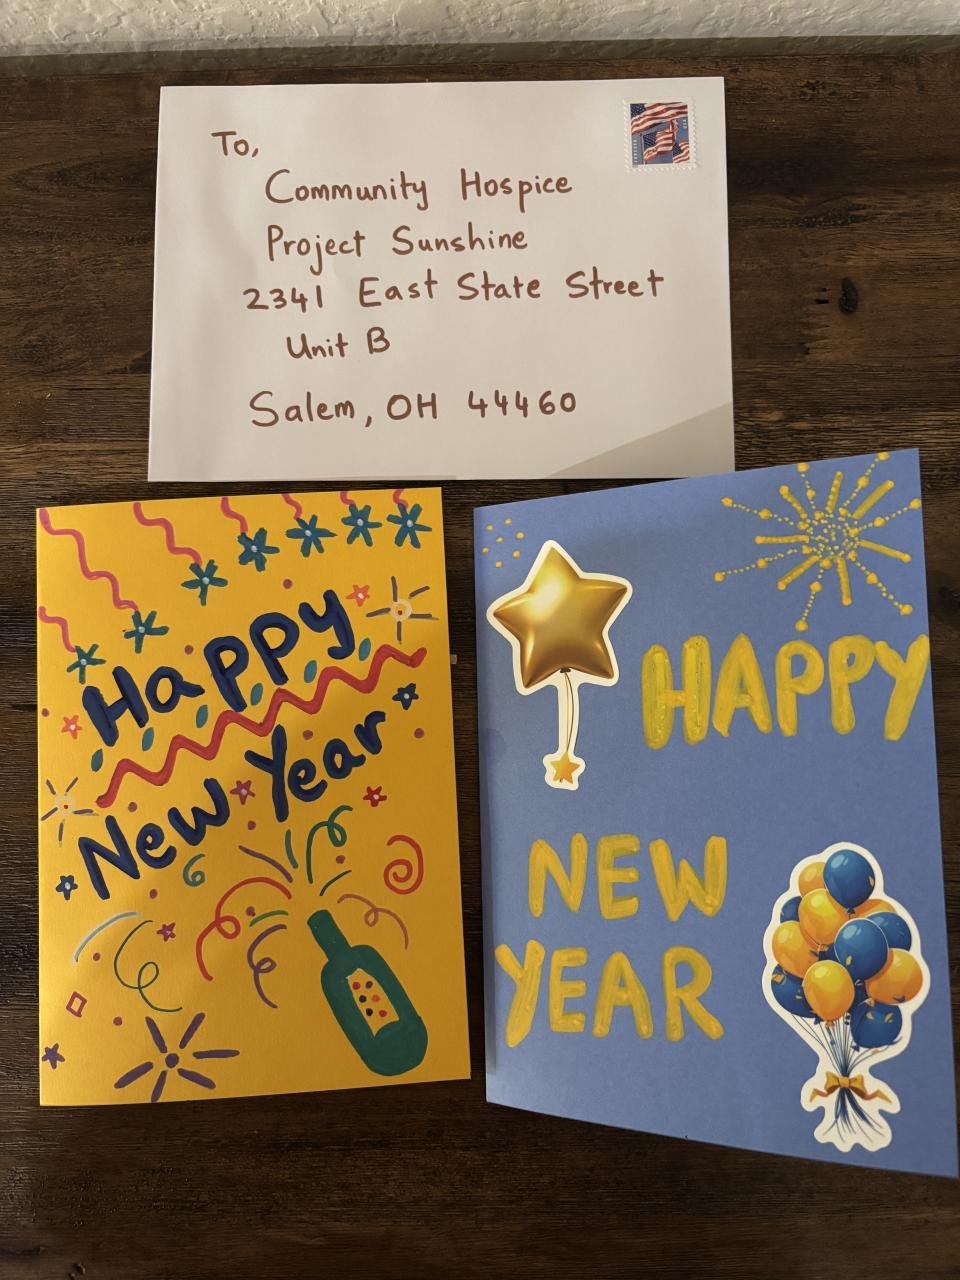 To,
Community Hospice
Project Sunshine
2341 East State Street
Unit B
Salem, OH 44460
Happy
New Year
HAPPY
NEW
YEAR